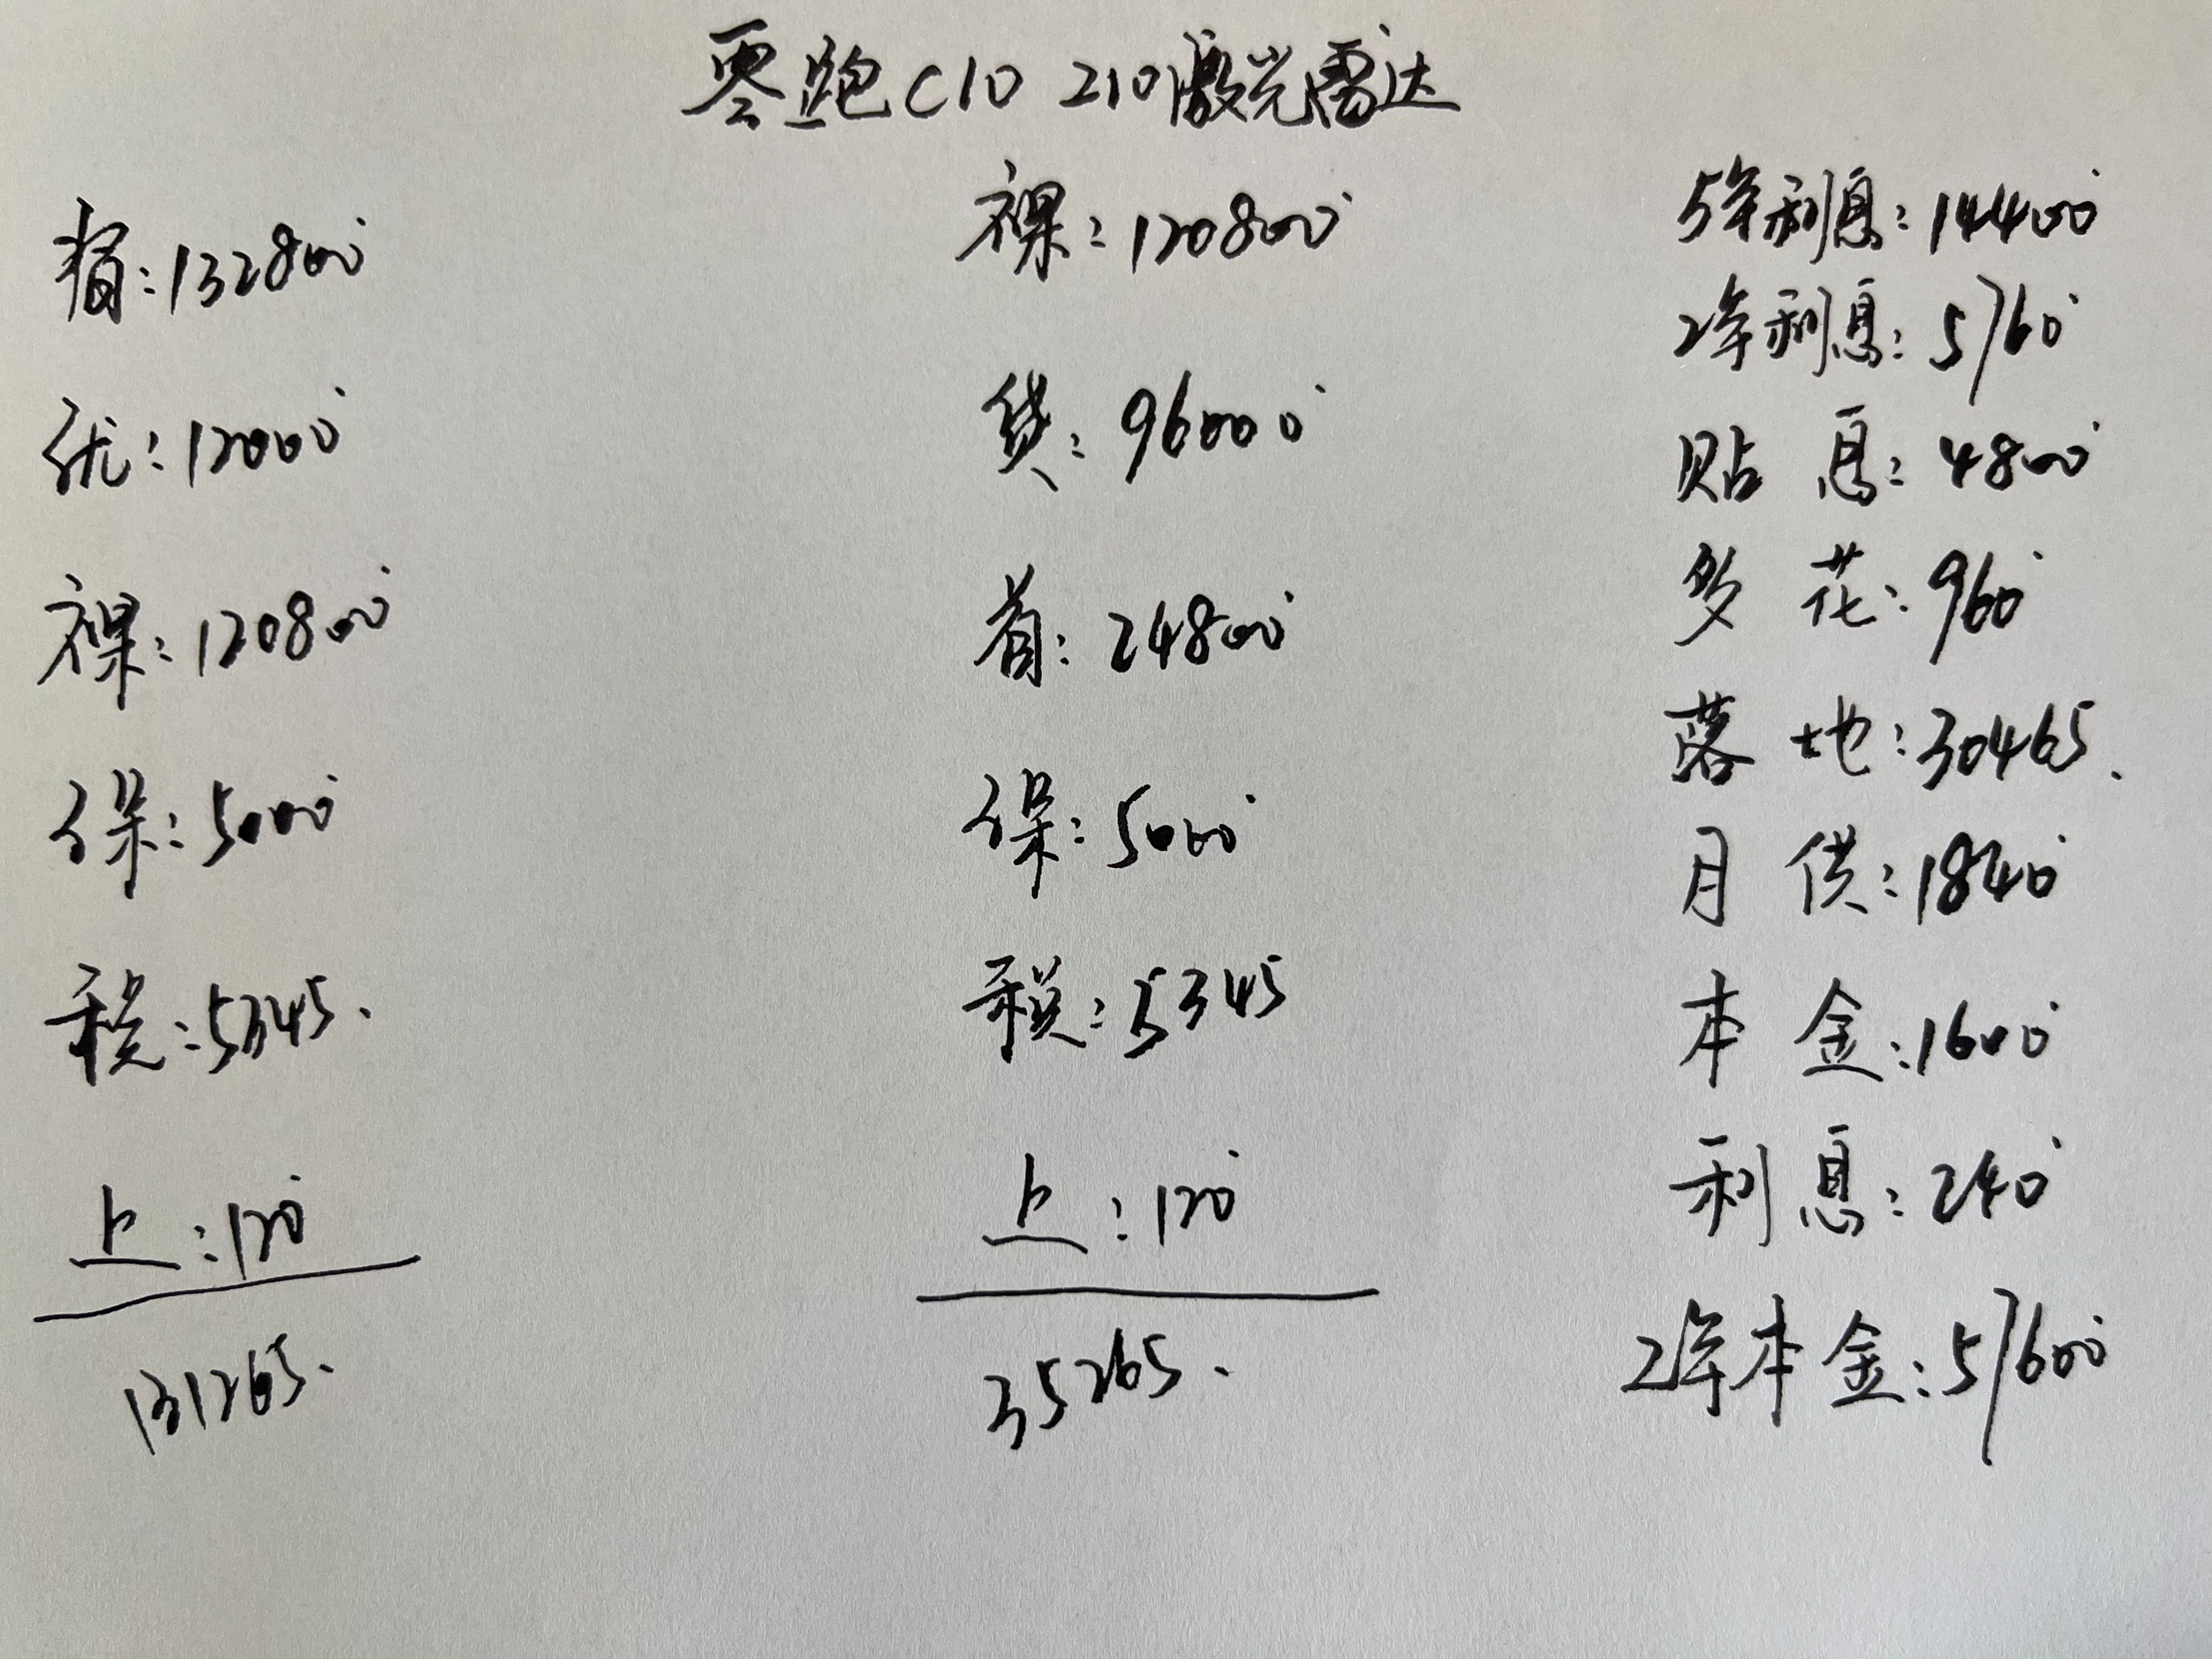 零跑C10 210激光雷达
指:132800
优:12000
裸:120800
保:5000
税:5345.
上:120
131265.
裸:120800
贷:96000
首:24800
保:5000
税:5345
上:120
35265.
5年利息:14400
2年利息:5760
贴息:4800
多花:960
落地:30465.
月供:1840
本金:1600
利息:240
2年本金:57600